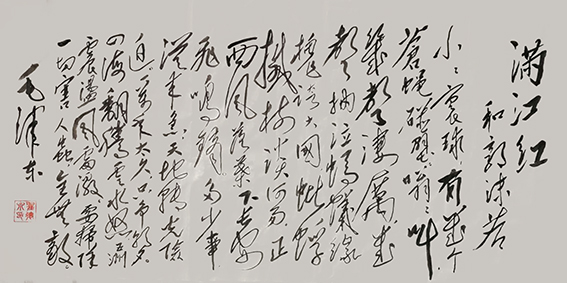 满江红
和郭沫若
小々寰球有几个
苍蝇碰壁嗡々叫
几声凄厉几
声抽泣蚂蚁缘
槐夸大国蚍蜉
撼树谈何易正
西风落叶下长安
飞鸣镝多少事
从来急天地转光阴
迫一万年太久只争朝夕
四海翻腾云水怒五洲
震荡风雷激要扫除
一切害人虫全无敌
毛泽东